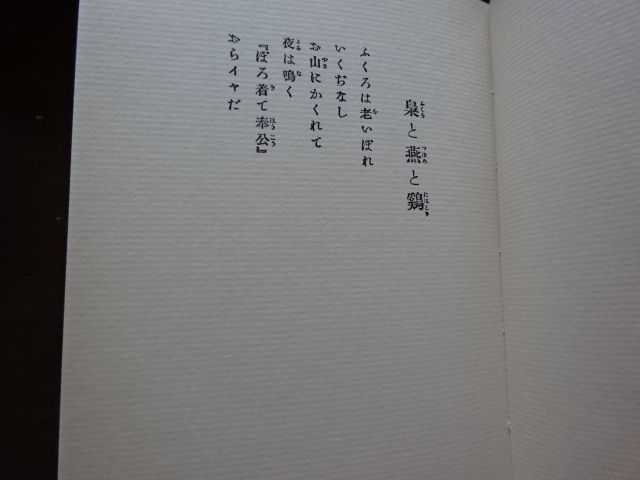 梟と燕と鷄
ふくろは老いぼれ
いくぢなし
お山にかくれて
夜は鳴く
『ぼろ着て奉公』
おらイヤだ